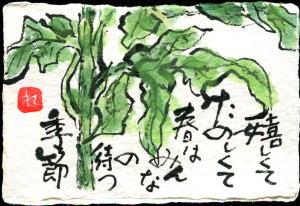 嬉しくて
たのしくて
春はみんな
の
待つ
季節